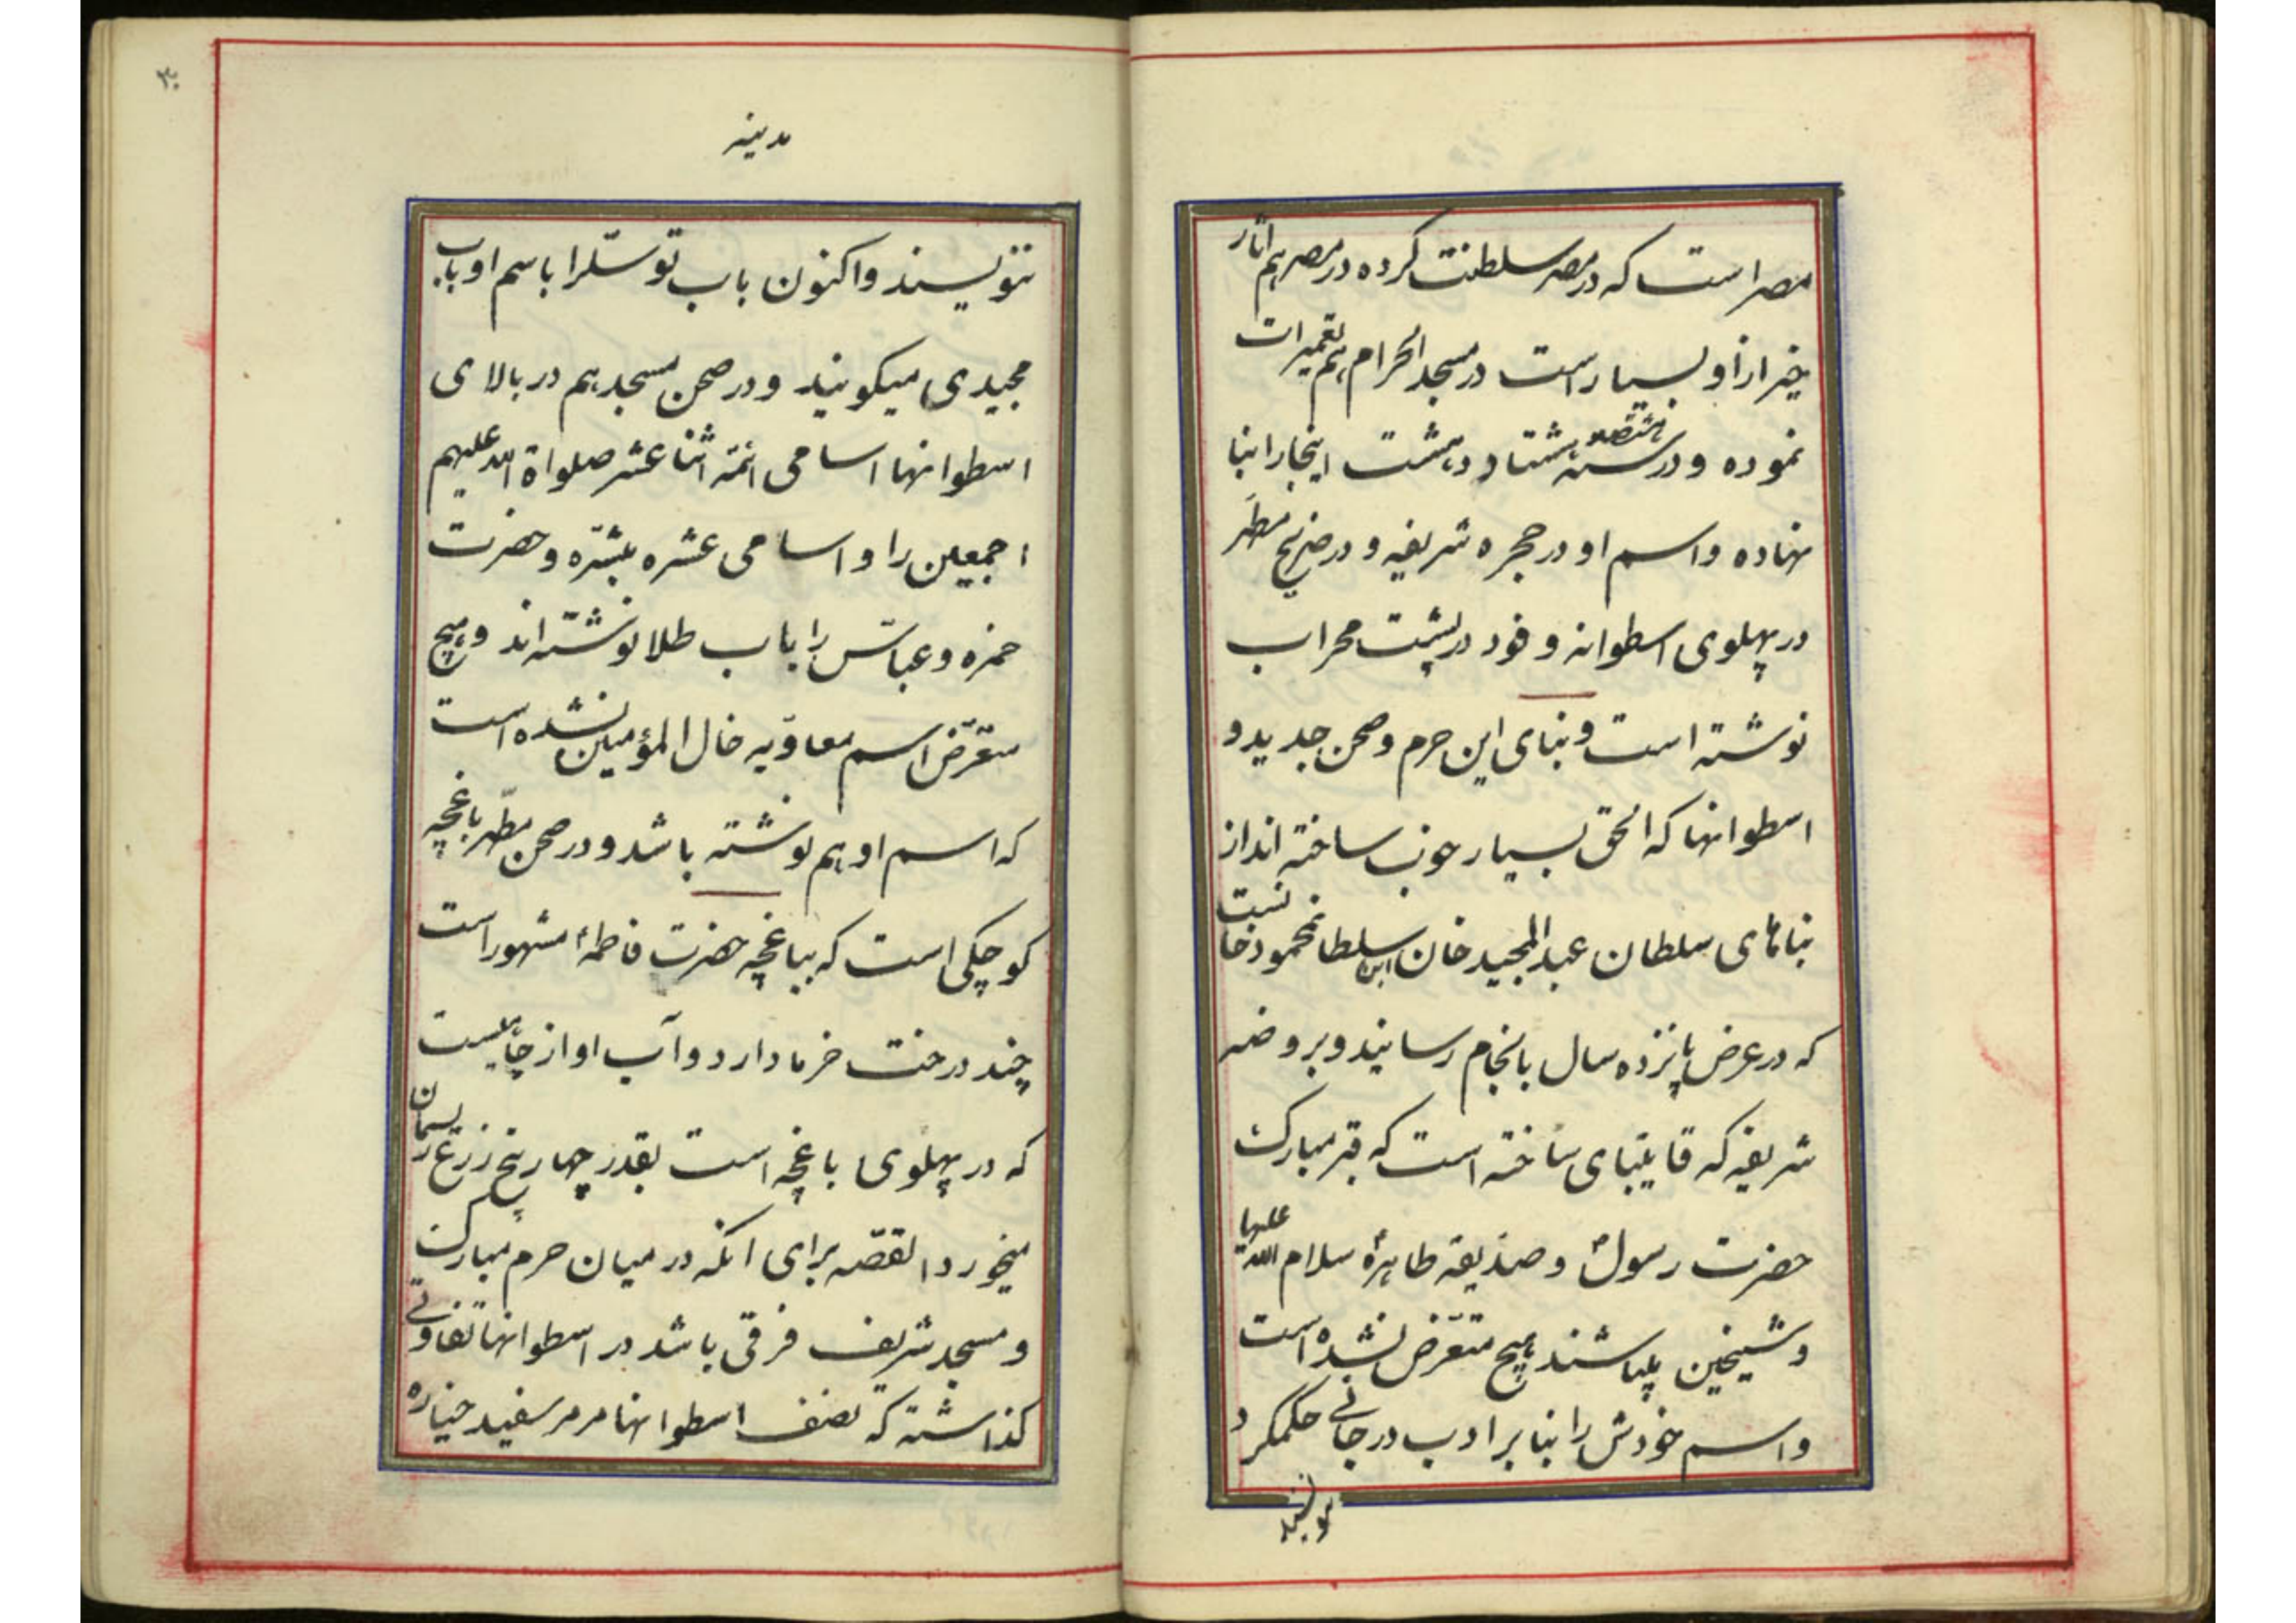 مصر است که در مصر سلطنت کرده در مصر هم آثار
خیر از او بسیار است در مسجد الحرام هم تعمیرات
نموده و در سنه هشتصد هشتاد و هشت اینجا را بنا
نهاده و اسم او در حجره شریفه و در ضریح مطهر
در پهلوی اسطوانه وفود در پشت محراب
نوشته است و بنای این حرم و صحن جدید و
اسطوانها که الحق بسیار خوب ساخته اند از
بناهای سلطان عبدالمجید خان ابن سلطان محمود خانست
که در عرض پانزده سال بانجام رسانیند و بروضه
شریفه که قایتبای ساخته است که قبر مبارک
حضرت رسول و صدیقه طاهره سلام الله علیها
و شیخین میباشند هیچ متعرض نشده است
و اسم خودش را بنا بر ادب در جائی حکم کرد
ننویسند
۳۰
مدینه
ننویسند و اکنون باب توسل را باسم او باب
مجیدی میکویند و در صحن مسجد هم در بالای
اسطوانها اسامی ائمه اثنا عشر صلواة الله علیهم
اجمعین را و اسامی عشره مبشره و حضرت
حمزه و عباس را باب طلا نوشته اند و هیچ
متعرض اسم معاویه خال المؤمنین نشده است
که اسم او هم نوشته باشد و در صحن مطهر باغچه
کوچکی است که بباغچه حضرت فاطمه مشهور است
چند درخت خرما دارد و آب او از چاهیست
که در پهلوی باغچه است بقدر چهار پنج زرع ریسمان
میخورد القصه برای انکه در میان حرم مبارک
و مسجد شریف فرقی باشد در اسطوانها تفاوتی
کذاشته که نصف اسطوانها مرمر سفید خیاره